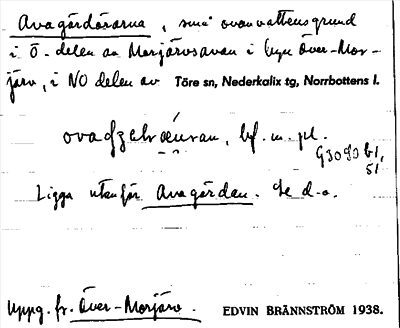 Avagårdörarna, små ovanvattensgrund
i Ö-delen av Morjärvsavan i byn Över-Mor-
järv, i NO delen av Töre sn, Nederkalix tg, Norrbottens l.
bf. m. pl.
G3090 b1,
51
Ligga utanför Avagården. Se d.o.
Uppg. fr. Över-Morjärv. EDVIN BRÄNNSTRÖM 1938.